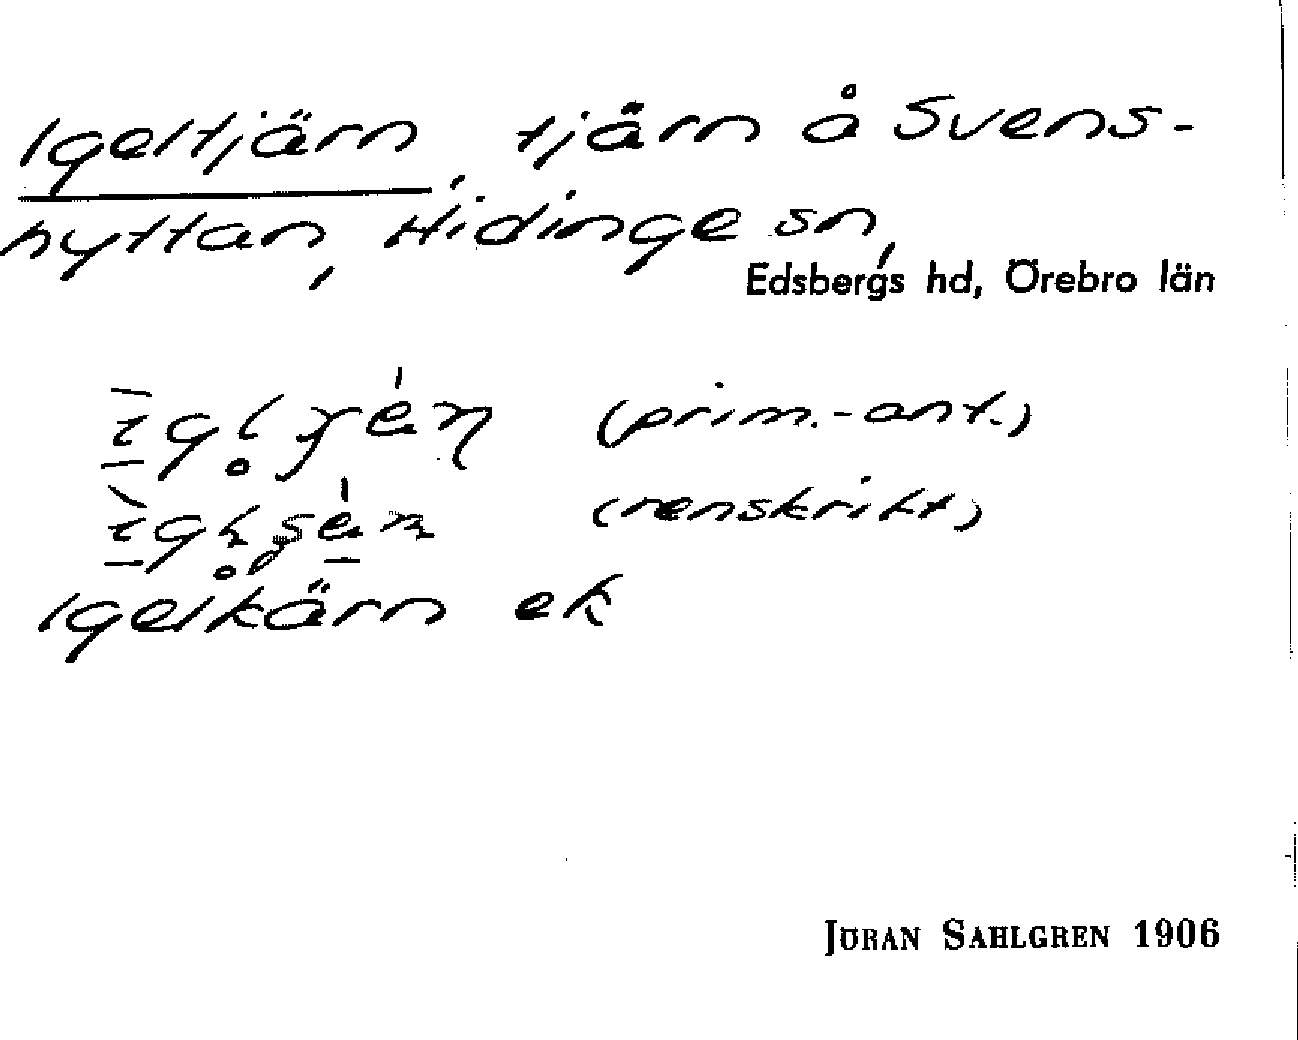 Igeltjärn, tjärn å Svens-
hyttan, Hidinge sn,
Edsbergs hd, Örebro län
(prim.-ant.)
(renskrift)
Igelkärn ek
JÖRAN SAHLGREN 1906